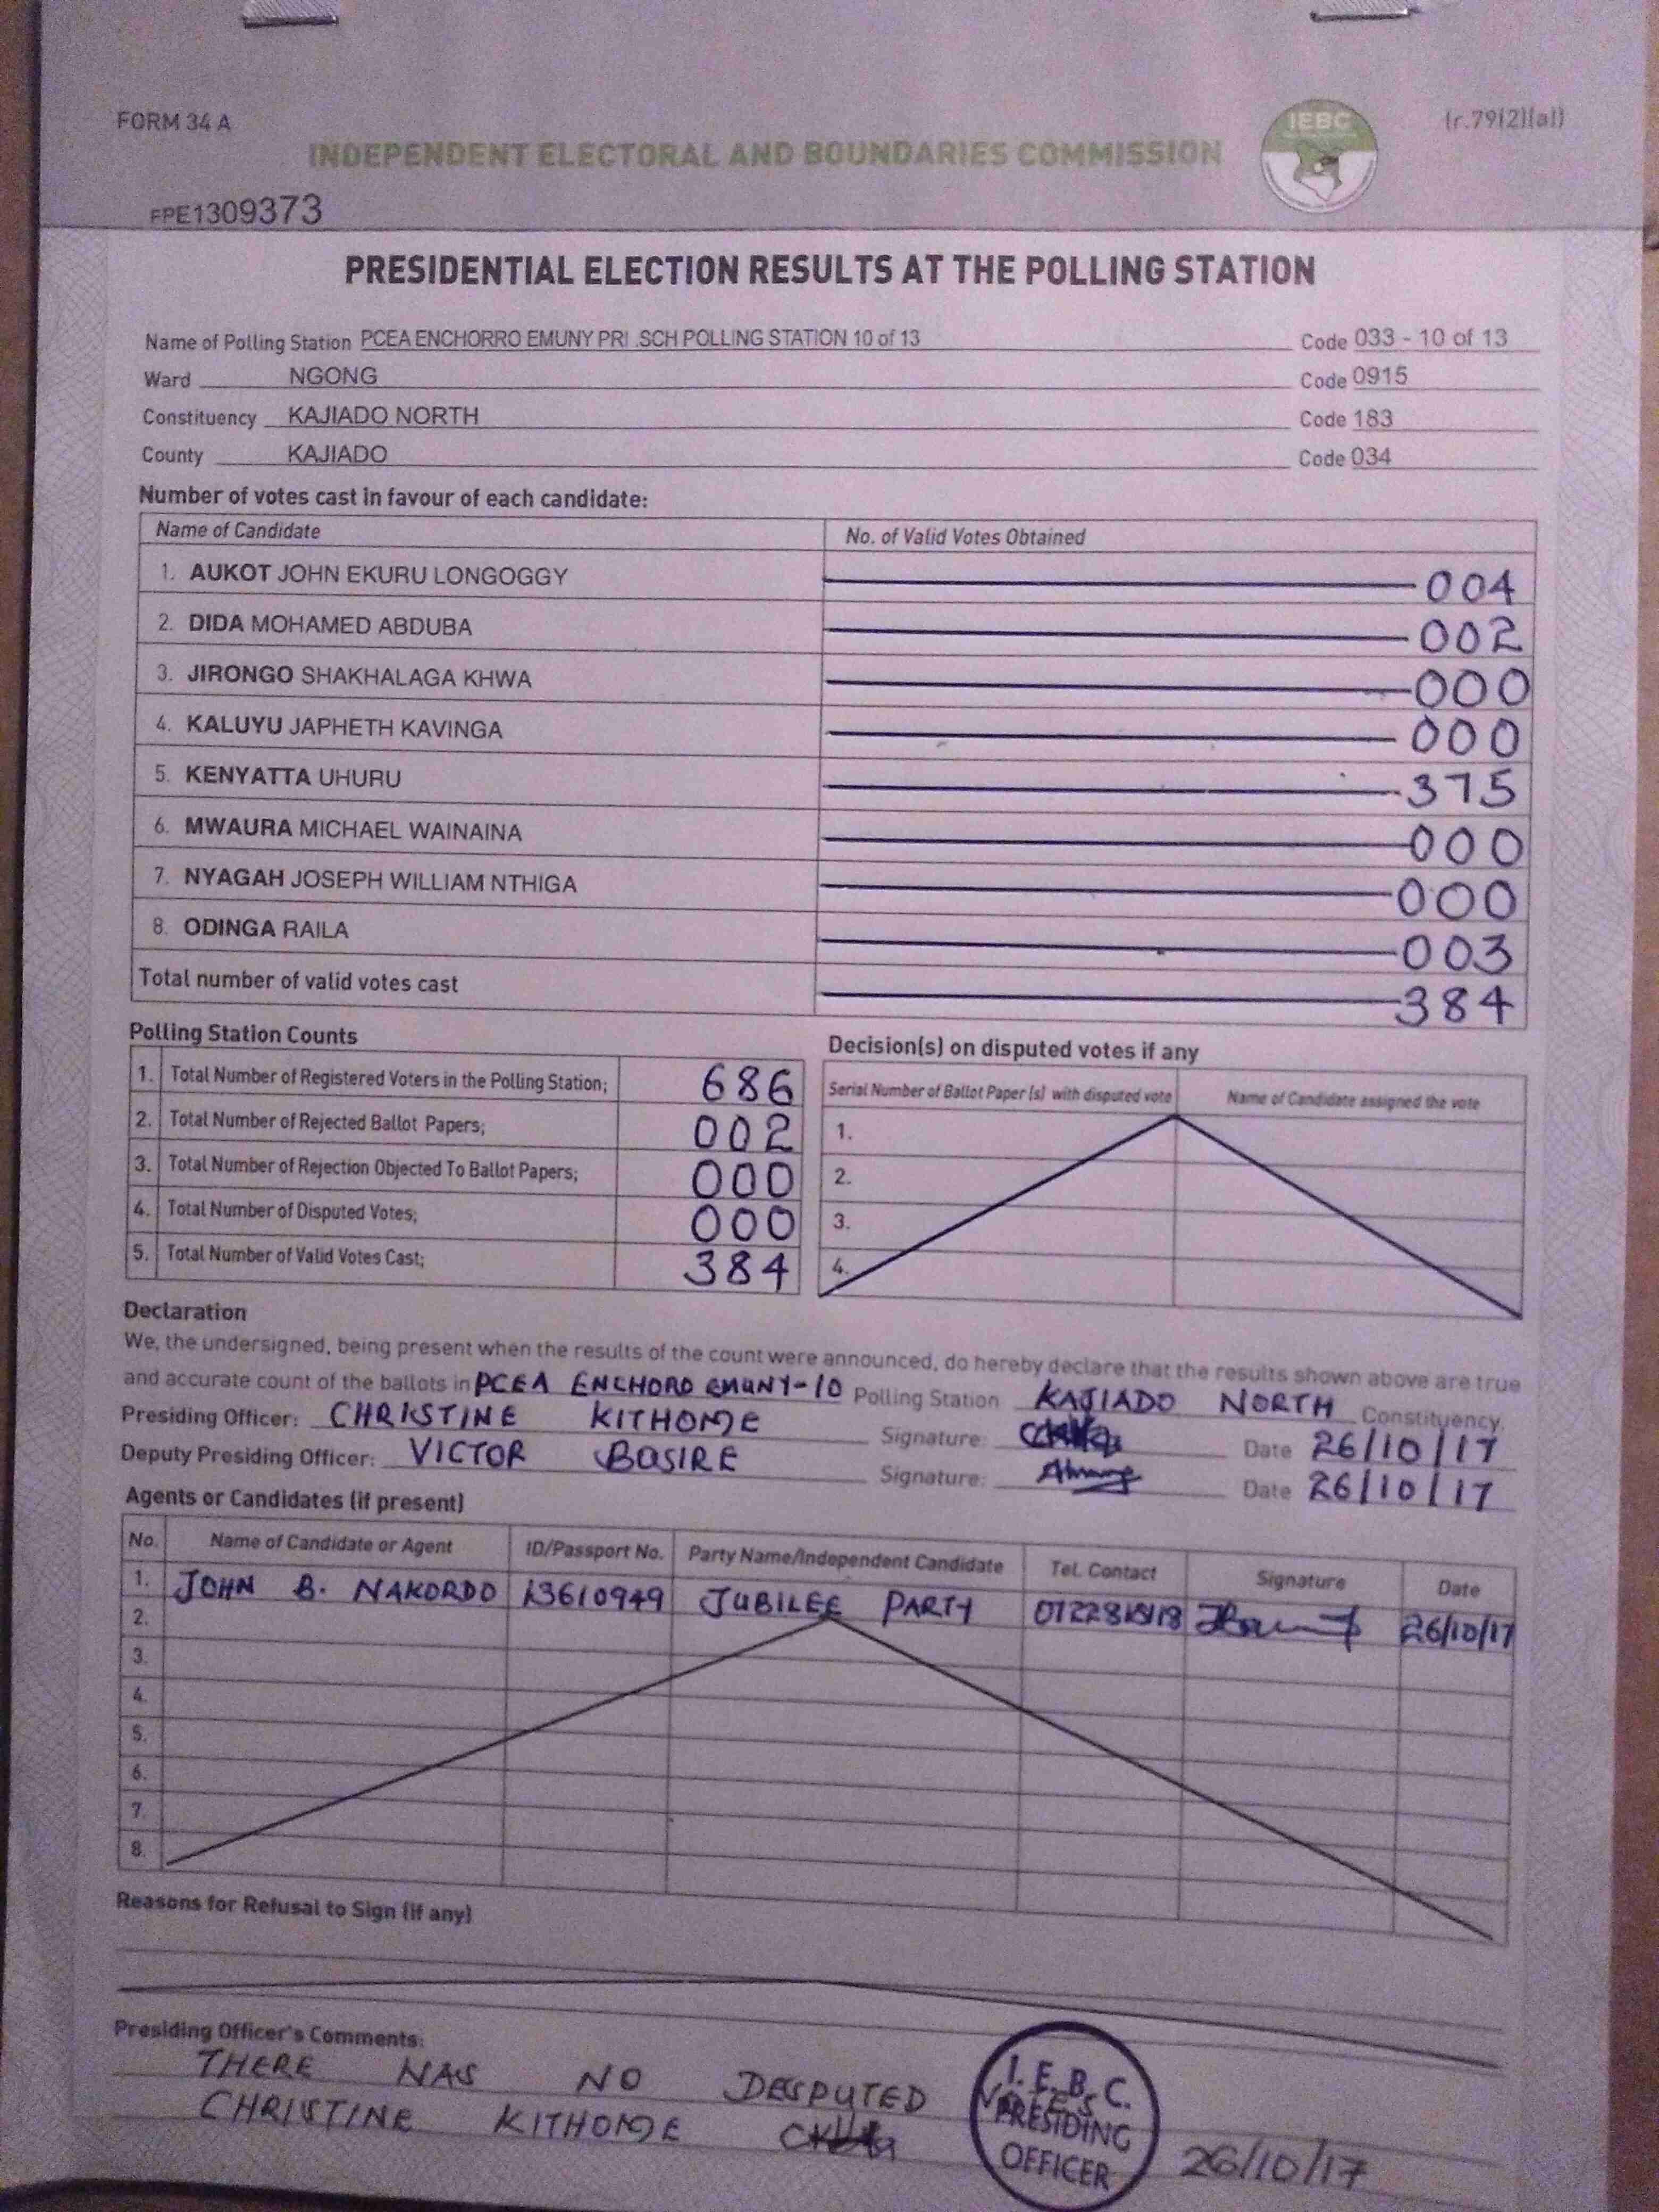 FORM 34 A
(r.79(2)(a))
INDEPENDENT ELECTORAL AND BOUNDARIES COMMISSION
IEBC
FPE1309373
PRESIDENTIAL ELECTION RESULTS AT THE POLLING STATION
Name of Polling Station PCEA ENCHORRO EMUNY PRI .SCH POLLING STATION 10 of 13 Code 033 - 10 of 13
Ward NGONG Code 0915
Constituency KAJIADO NORTH Code 183
County KAJIADO Code 034
Number of votes cast in favour of each candidate:
Name of Candidate No. of Valid Votes Obtained
1. AUKOT JOHN EKURU LONGOGGY 004
2. DIDA MOHAMED ABDUBA 002
3. JIRONGO SHAKHALAGA KHWA 000
4. KALUYU JAPHETH KAVINGA 000
5. KENYATTA UHURU 375
6. MWAURA MICHAEL WAINAINA 000
7. NYAGAH JOSEPH WILLIAM NTHIGA 000
8. ODINGA RAILA 003
Total number of valid votes cast 384
Polling Station Counts
1. Total Number of Registered Voters in the Polling Station; 686
2. Total Number of Rejected Ballot Papers; 002
3. Total Number of Rejection Objected To Ballot Papers; 000
4. Total Number of Disputed Votes; 000
5. Total Number of Valid Votes Cast; 384
Decision(s) on disputed votes if any
Serial Number of Ballot Paper (s) with disputed vote Name of Candidate assigned the vote
1.
2.
3.
4.
Declaration
We, the undersigned, being present when the results of the count were announced, do hereby declare that the results shown above are true
and accurate count of the ballots in PCEA ENCHORO EMUNY-10 Polling Station KAJIADO NORTH Constituency.
Presiding Officer: CHRISTINE KITHOME Signature: Date 26/10/17
Deputy Presiding Officer: VICTOR BOSIRE Signature: Date 26/10/17
Agents or Candidates (if present)
No. Name of Candidate or Agent ID/Passport No. Party Name/Independent Candidate Tel. Contact Signature Date
1. JOHN B. NAKORDO 13610949 JUBILEE PARTY 26/10/17
2.
3.
4.
5.
6.
7.
8.
Reasons for Refusal to Sign (if any)
Presiding Officer's Comments:
THERE WAS NO DESPUTED VOTES
CHRISTINE KITHOME
I.E.B.C.
PRESIDING
OFFICER
26/10/17